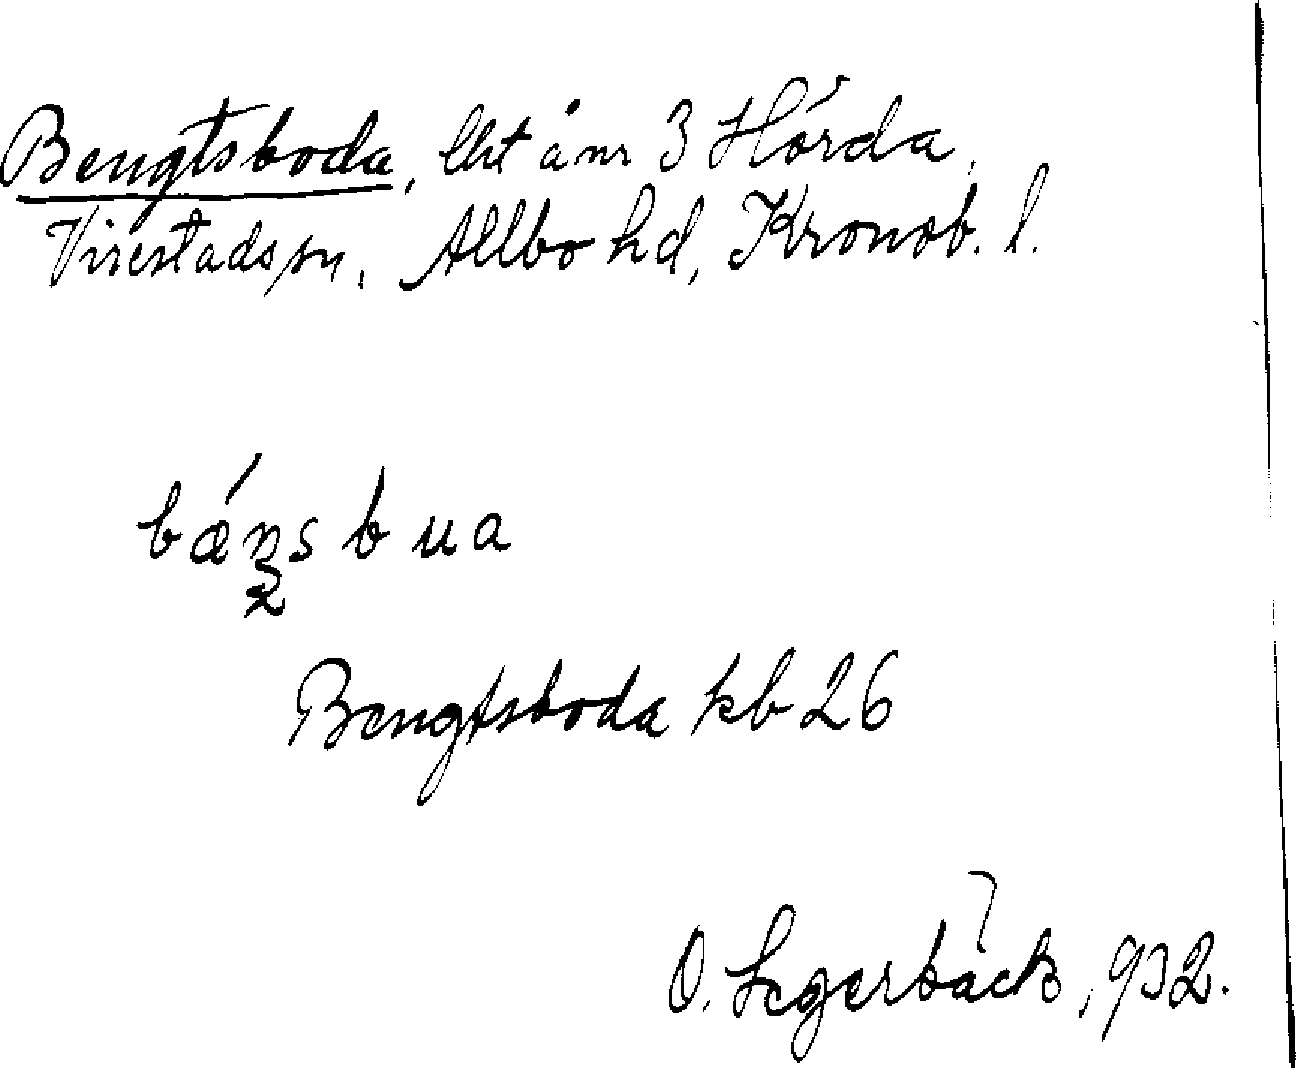 Bengtsboda, lht å nr 3 Hörda,
Virestads sn, Allbo hd, Kronob. l.
bǽŋs b u a
Bengtsboda kb 26
O. Segerbäck, 932.